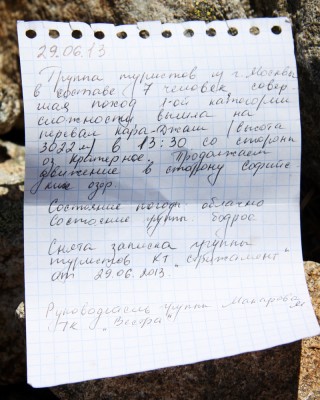 29.06.13
Группа туристов из г. Москвы
в составе 7 человек совер-
шая поход 1-ой категории
сложности вышла на
перевал Караджаш (высота
3022м) в 13:30 со стороны
оз. Кратерное. Продолжает
движение в сторону софийс
ких озер.
Состояние погоды облачно
Состояние группы бодрое.
Снята записка группы
туристов КТ
от 29.06.2013.
Руководитель группы Макарова
тк "Вестра"